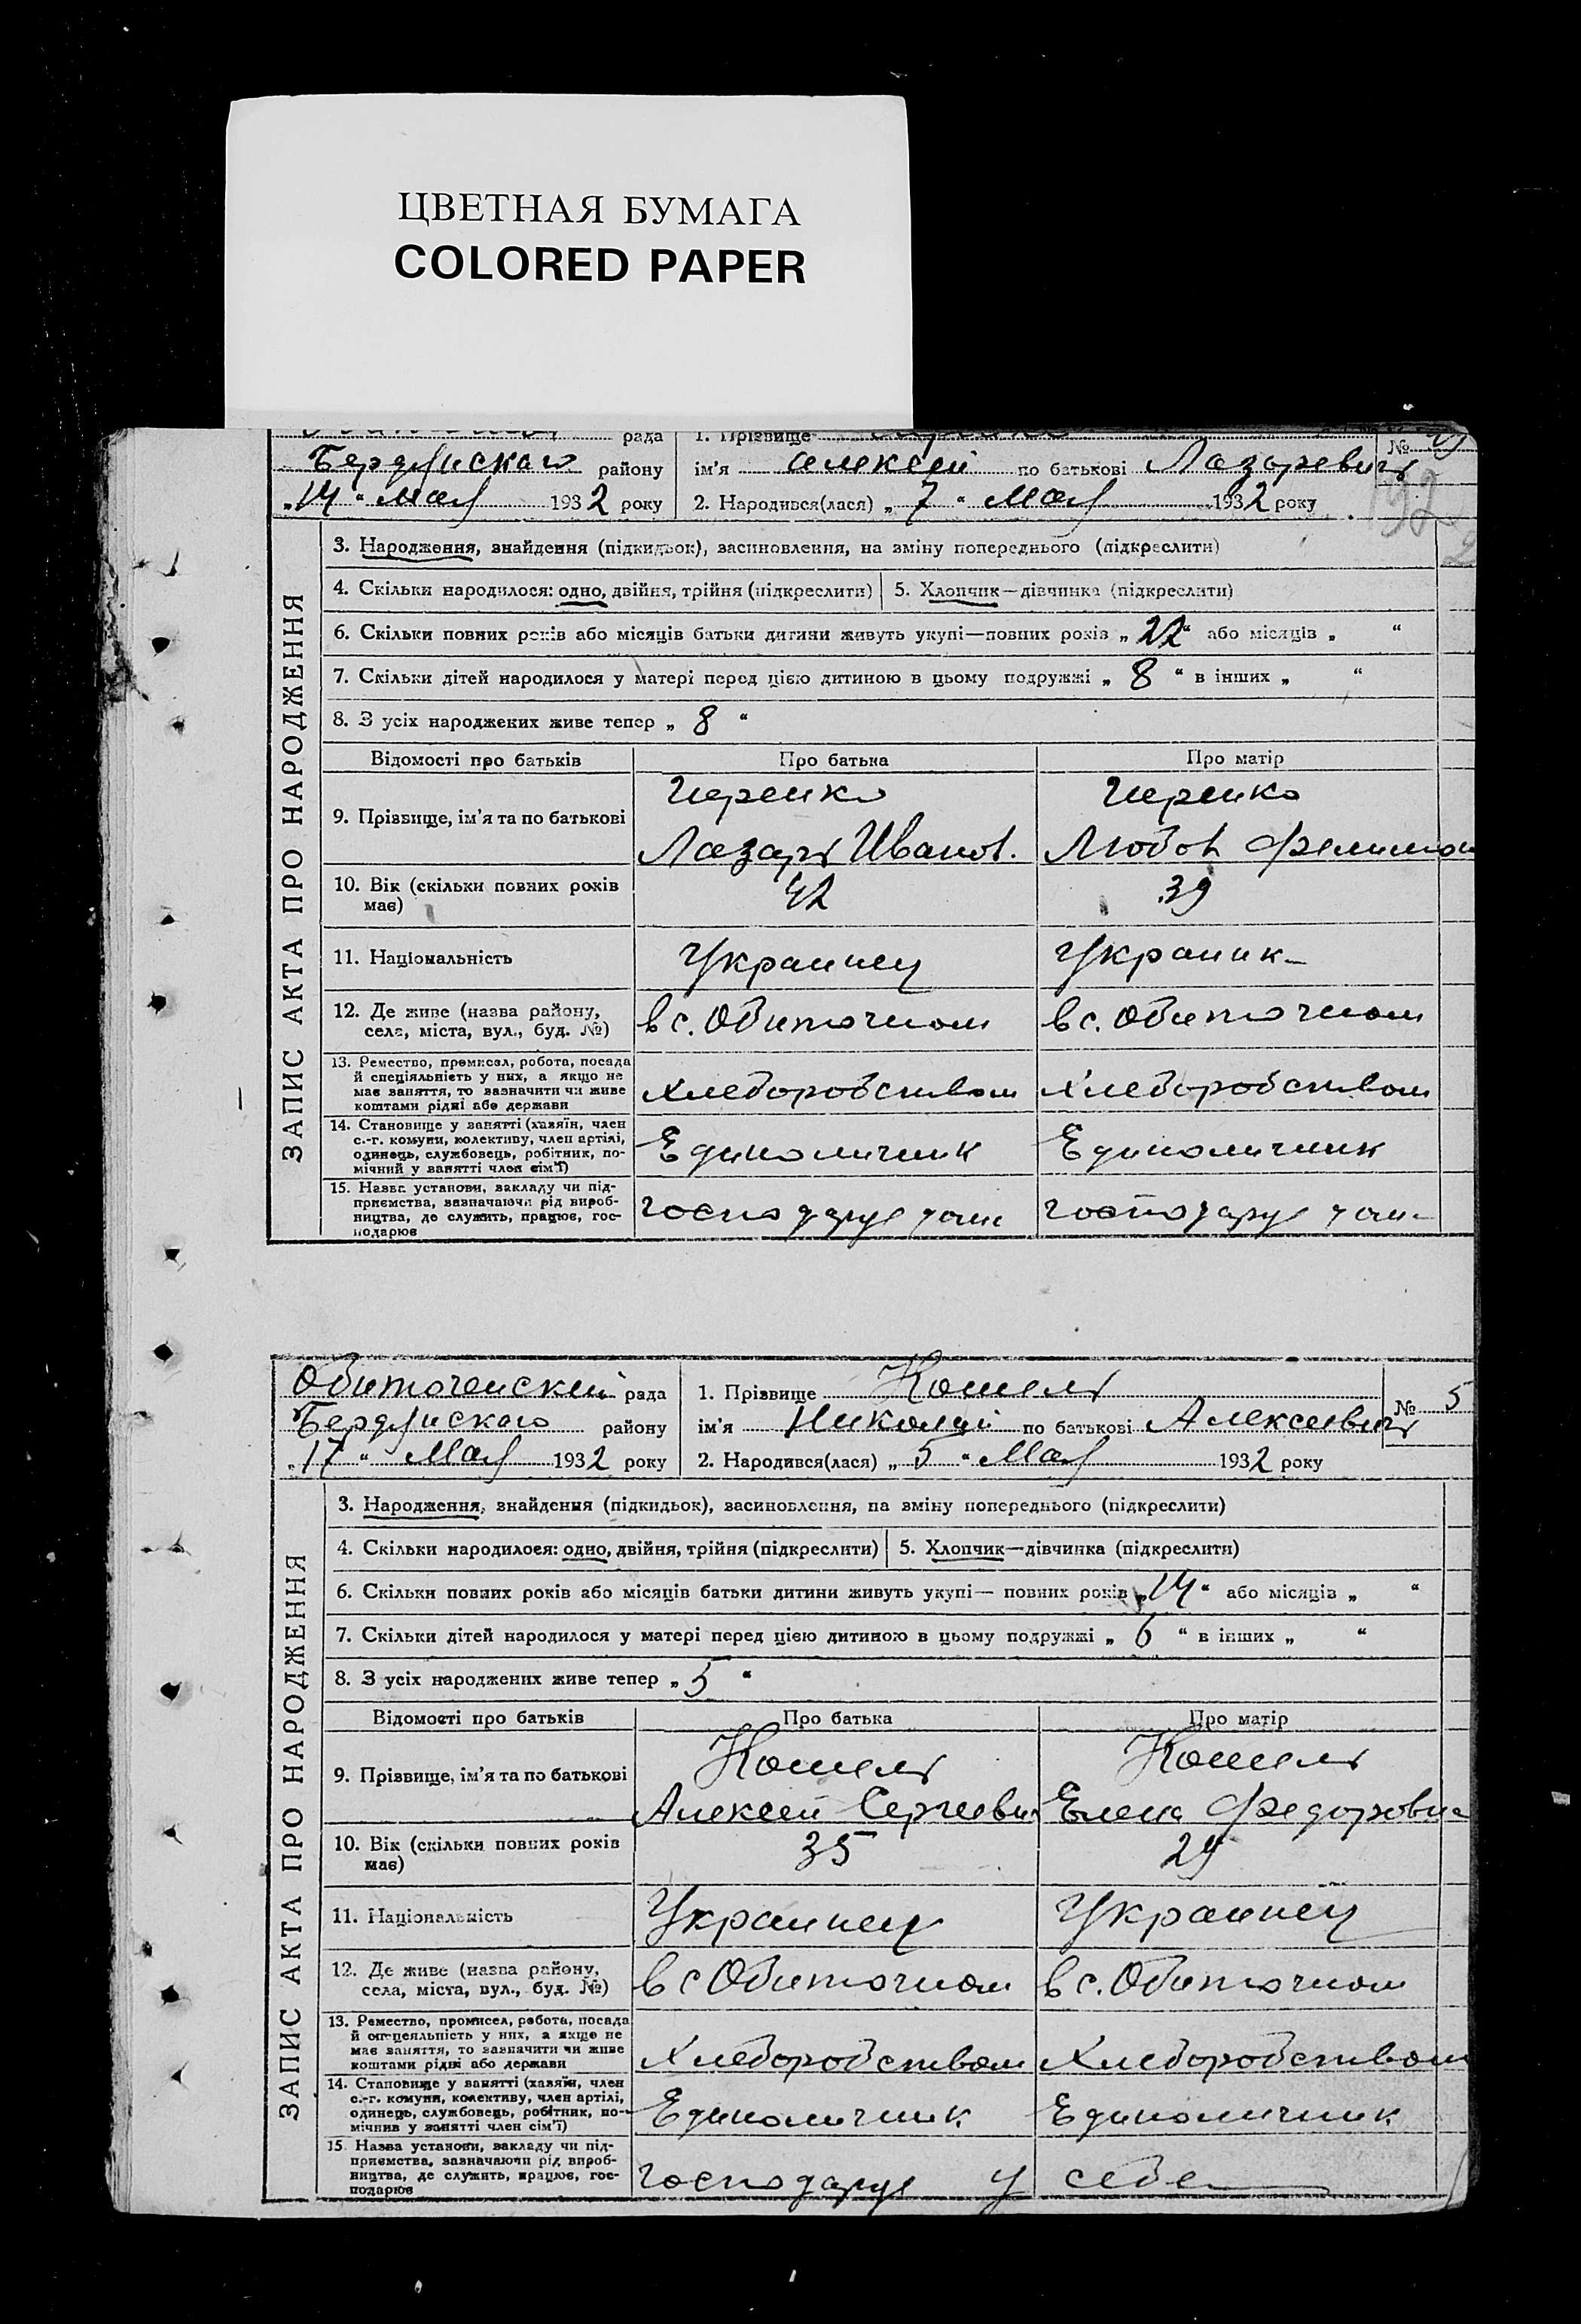 ЦВЕТНАЯ БУМАГА
COLORED PAPER
рада 1. Прізвище №
Бердянского району ім'я Алексей по батькові Лазаревичъ
„14“ Мая 1932 року 2. Народився(лася) „7“ Мая 1932 року
192
ЗАПИС АКТА ПРО НАРОДЖЕННЯ
3. Народження, знайдення (підкидьок), засиновлення, на зміну попереднього (підкреслити)
4. Скільки народилося: одно, двійня, трійня (підкреслити) 5. Хлопчик—дівчинка (підкреслити)
6. Скільки повних років або місяців батьки дитини живуть укупі—повних років „22“ або місяців „ “
7. Скільки дітей народилося у матері перед цією дитиною в цьому подружжі „8“ в інших „ “
8. З усіх народжених живе тепер „8“
Відомості про батьків Про батька Про матір
9. Прізвище, ім'я та по батькові
Лазарь Иванов. Любов
10. Вік (скільки повних років має) 42 39
11. Національність Украинец Украинк-
12. Де живе (назва району, села, міста, вул., буд. №) в с. Обиточном в с. Обиточном
13. Ремество, промисел, робота, посада й спеціяльність у них, а якщо не має заняття, то зазначити чи живе коштами рідні або держави Хлеборобством Хлеборобством
14. Становище у занятті (хазяїн, член с.-г. комуни, колективу, член артілі, одинець, службовець, робітник, помічний у занятті член сім'ї) Единоличник Единоличник
15. Назва установи, закладу чи підприємства, зазначаючи рід виробництва, де служить, працює, господарює господарує господарує
Обиточенский рада 1. Прізвище Кошель № 5
Бердянского району ім'я Николай по батькові Алексеевичъ
„17“ Мая 1932 року 2. Народився(лася) „5“ Мая 1932 року
ЗАПИС АКТА ПРО НАРОДЖЕННЯ
3. Народження, знайдення (підкидьок), засиновлення, на зміну попереднього (підкреслити)
4. Скільки народилося: одно, двійня, трійня (підкреслити) 5. Хлопчик—дівчинка (підкреслити)
6. Скільки повних років або місяців батьки дитини живуть укупі— повних років „14“ або місяців „ “
7. Скільки дітей народилося у матері перед цією дитиною в цьому подружжі „6“ в інших „ “
8. З усіх народжених живе тепер „5“
Відомості про батьків Про батька Про матір
9. Прізвище, ім'я та по батькові Кошель Кошель
Алексей Сергеевич Елена Федоровна
10. Вік (скільки повних років має) 35
11. Національність Украинец Украинец
12. Де живе (назва району, села, міста, вул., буд. №) в с Обиточном в с. Обиточном
13. Ремество, промисел, робота, посада й спеціяльність у них, а якщо не має заняття, то зазначити чи живе коштами рідні або держави Хлеборобством Хлеборобством
14. Становище у занятті (хазяїн, член с.-г. комуни, колективу, член артілі, одинець, службовець, робітник, помічний у занятті член сім'ї) Единоличник Единоличник
15. Назва установи, закладу чи підприємства, зазначаючи рід виробництва, де служить, працює, господарює господарує у себе